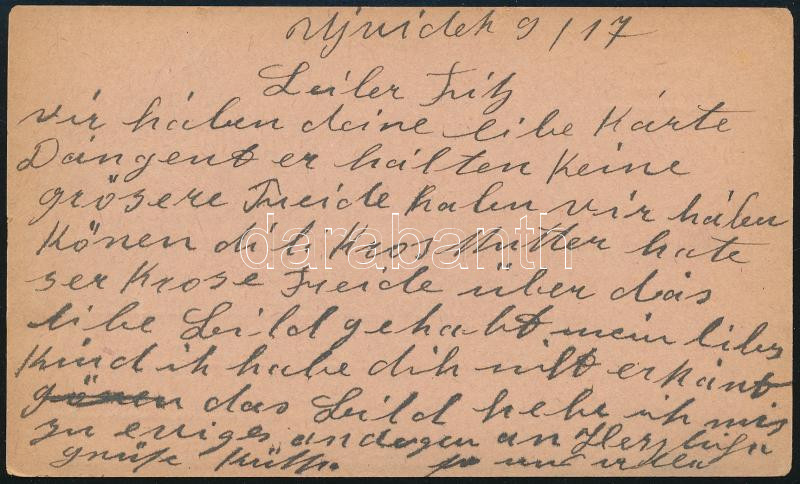 Ujvidek 9/17
Leiler Fritz
vir háben deine libe Kárte
Dángent er hálten Keine
grösere Freide haben vir háben
Könen dih Kros Mutter hate
ser Krose Freide über dás
libe Bild gehabt mein libes
Kind ih habe dih niht erkánt
gönen das Bild hebe ih mir
zu eviges andegen an Herzliche
grüse Küsse
darabanth